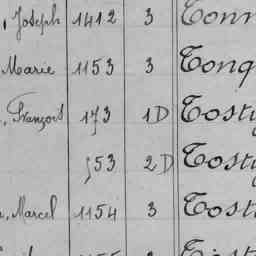 , Joseph 1412 3 Tonn
Marie 1153 3 Tonq
, François 173 1D Tosty
553 2D Tosty
, Marcel 1154 3 Tost